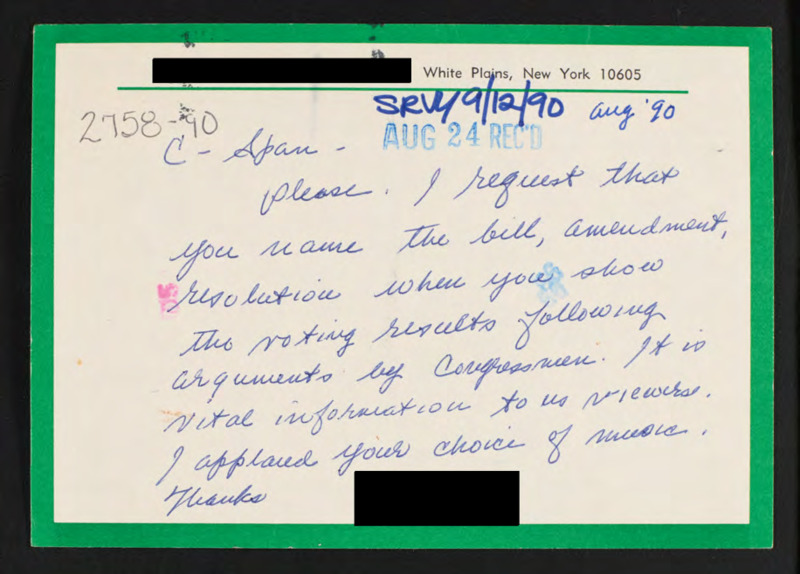 White Plains, New York 10605
SRVY 9/12/90 aug '90
2758-90
AUG 24 REC'D
C-Span -
please. I request that
you name the bill, amendment,
resolution when you show
the voting results following
arguments by Congressmen. It is
vital information to us viewers.
I applaud your choice of music.
Thanks